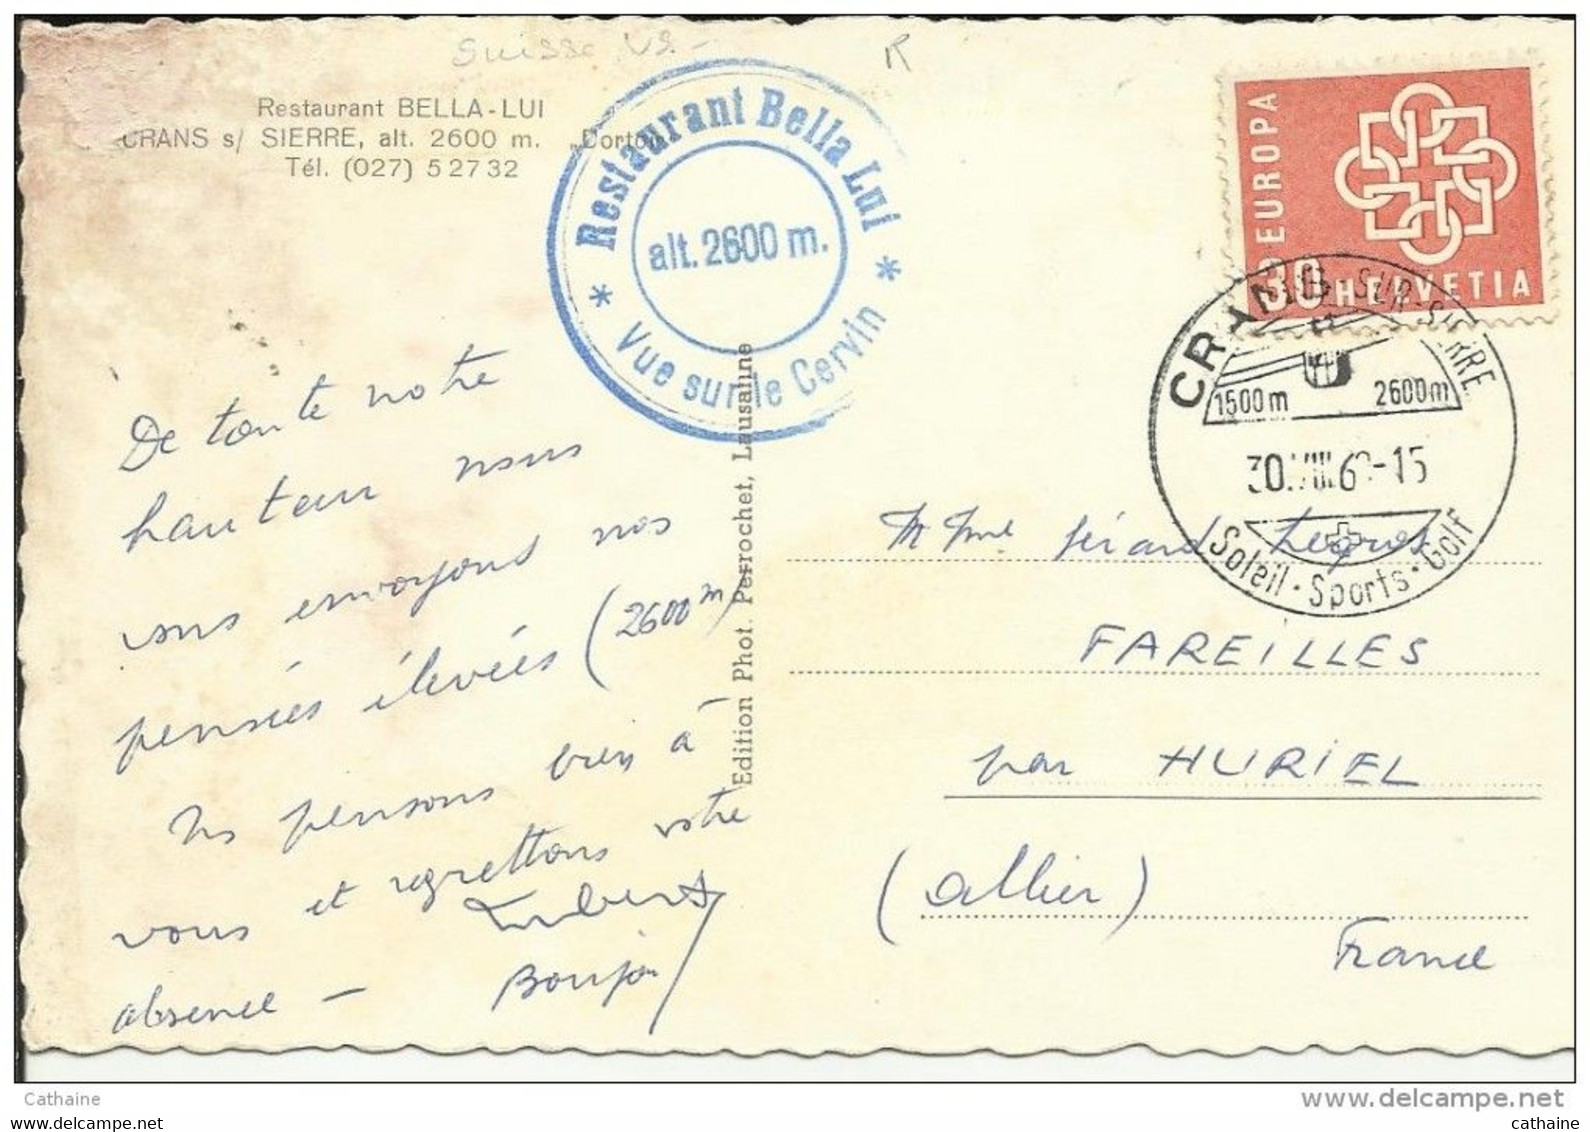 Suisse VS.-
R
Restaurant BELLA-LUI
CRANS s/ SIERRE, alt. 2600 m.
Tél. (027) 5 27 32
Restaurant Bella Lui
alt. 2600 m.
* Vue sur le Cervin *
EUROPA
30 HELVETIA
CRANS SUR-SIERRE
1500m 2600m
30.VIII.6 -15
Soleil · Sports · Golf
De toute notre
hauteur nous
vous envoyons nos
pensées élevées (2600 m)
Ns pensons bien à
vous et regrettons votre
absence —
Bonjour
Edition Phot. Perrochet, Lausanne
M Mme Gérard
FAREILLES
par HURIEL
(Allier)
France
Cathaine
www.delcampe.net
Cathaine
cathaine